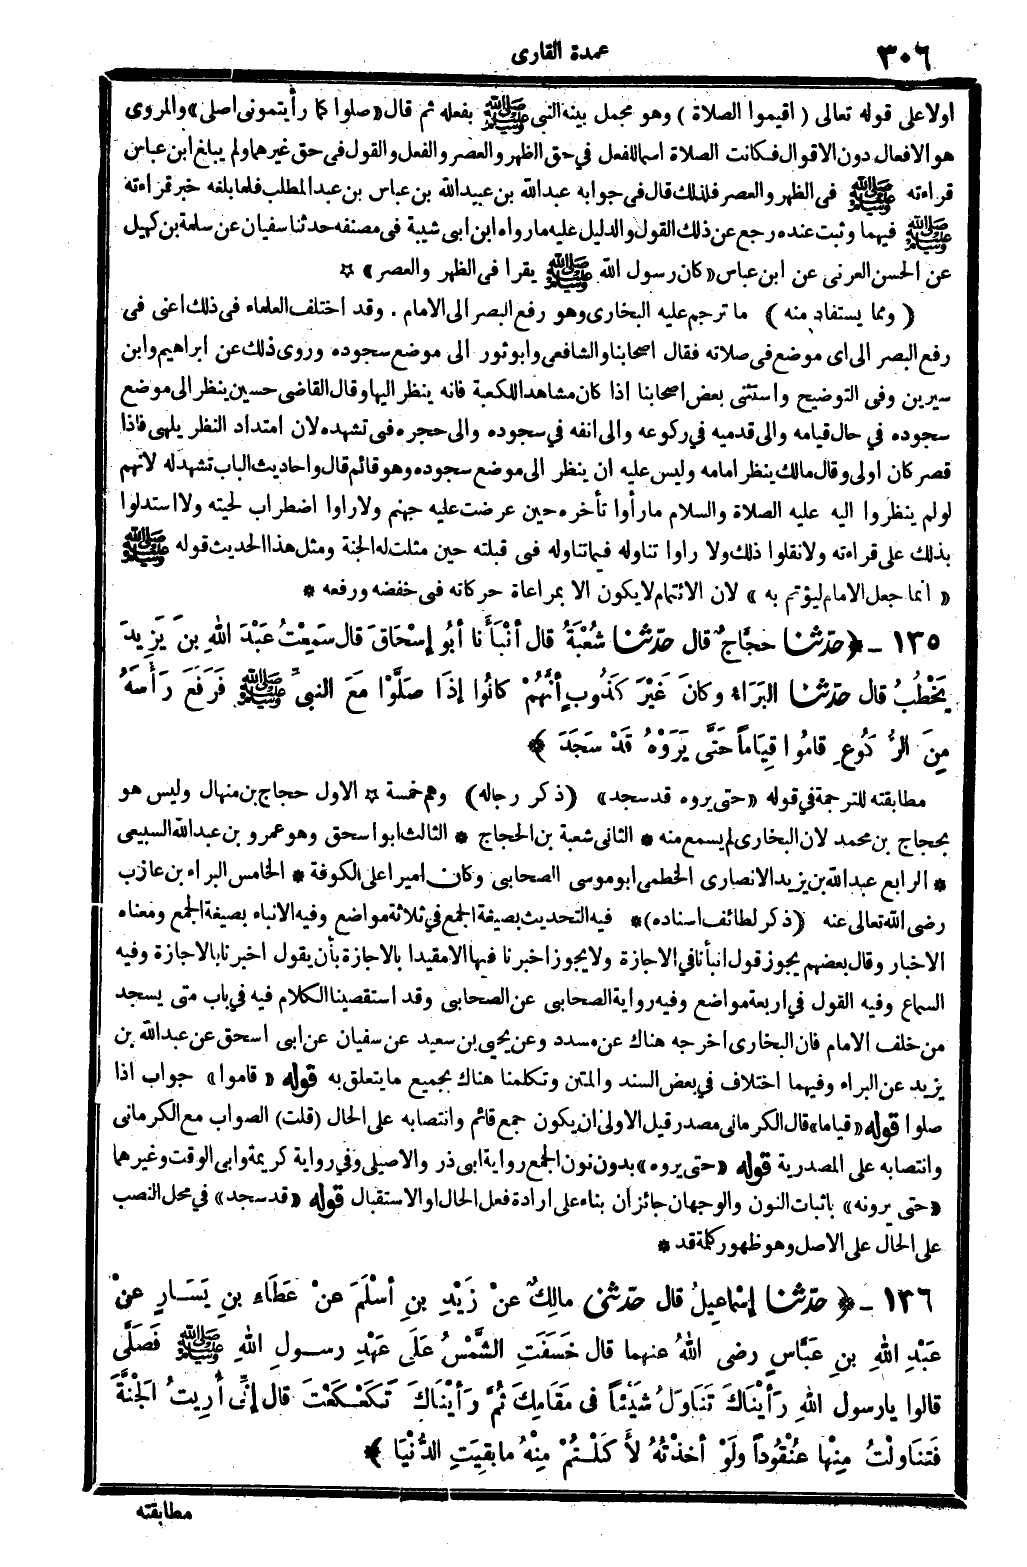 ٣٠٦
عمدة القارى
اولا على قوله تعالى ( اقيموا الصلاة ) وهو مجمل بينه النبى ﷺ بفعله ثم قال «صلوا كما رأيتمونى اصلى» والمروى
هو الافعال دون الاقوال فكانت الصلاة اسما للفعل في حق الظهر والعصر والفعل والقول فى حق غيرهما ولم يبلغ ابن عباس
قراءته ﷺ فى الظهر والعصر فلذلك قال فى جوابه عبدالله بن عبيدالله بن عباس بن عبد المطلب فلما بلغه خبر قراءته
ﷺ فيهما وثبت عنده رجع عن ذلك القول والدليل عليه مارواه ابن ابى شيبة فى مصنفه حدثنا سفيان عن سلمة بن كهيل
عن الحسن العرنى عن ابن عباس «كان رسول الله ﷺ يقرا فى الظهر والعصر» ☆
( ومما يستفاد منه ) ما ترجم عليه البخارى وهو رفع البصر الى الامام . وقد اختلف العلماء فى ذلك اعنى فى
رفع البصر الى اى موضع فى صلاته فقال اصحابنا والشافعى وابو ثور الى موضع سجوده وروى ذلك عن ابراهيم وابن
سيرين وفى التوضيح واستثنى بعض اصحابنا اذا كان مشاهدا للكعبة فانه ينظر اليها وقال القاضى حسين ينظر الى موضع
سجوده في حال قيامه والى قدميه في ركوعه والى انفه في سجوده والى حجره فى تشهده لان امتداد النظر يلهى فاذا
قصر كان اولى وقال مالك ينظر امامه وليس عليه ان ينظر الى موضع سجوده وهو قائم قال واحاديث الباب تشهد له لانهم
لو لم ينظروا اليه عليه الصلاة والسلام مارأوا تأخره حين عرضت عليه جهنم ولا راوا اضطراب لحيته ولا استدلوا
بذلك على قراءته ولا نقلوا ذلك ولا راوا تناوله فيما تناوله فى قبلته حين مثلت له الجنة ومثل هذا الحديث قوله ﷺ
« انما جعل الامام ليؤتم به » لان الائتمام لا يكون الا بمراعاة حركاته فى خفضه ورفعه *
١٣٥ ـ ﴿ حدّثنا حجَّاجٌ قال حدّثنا شُعْبَةُ قال أنْبَأَنا أبُو إسْحَاقَ قال سَمِعْتُ عَبْدَ اللهِ بنَ يَزِيدَ
يَخْطُبُ قال حدّثنا البَرَاءُ وكانَ غَيْرَ كَذُوبٍ أنَّهُمْ كانُوا إذَا صَلَّوْا مَعَ النبىِّ ﷺ فَرَفَعَ رَأْسَهُ
مِنَ الرُّكُوعِ قامُوا قِيَاماً حَتَّى يَرَوْهُ قَدْ سَجَدَ ﴾
مطابقته للترجمة فى قوله «حتى يروه قد سجد» (ذكر رجاله) وهم خمسة ☆ الاول حجاج بن منهال وليس هو
بحجاج بن محمد لان البخارى لم يسمع منه * الثانى شعبة بن الحجاج * الثالث ابو اسحق وهو عمرو بن عبدالله السبيعى
* الرابع عبدالله بن يزيد الانصارى الخطمى ابو موسى الصحابى وكان اميرا على الكوفة * الخامس البراء بن عازب
رضى الله تعالى عنه (ذكر لطائف اسناده) * فيه التحديث بصيغة الجمع في ثلاثة مواضع وفيه الانباء بصيغة الجمع ومعناه
الاخبار وقال بعضهم يجوز قول انبأنا في الاجازة ولا يجوز اخبرنا فيها الا مقيدا بالاجازة بأن يقول اخبرنا بالاجازة وفيه
السماع وفيه القول في اربعة مواضع وفيه رواية الصحابى عن الصحابى وقد استقصينا الكلام فيه في باب متى يسجد
من خلف الامام فان البخارى اخرجه هناك عن مسدد وعن يحيى بن سعيد عن سفيان عن ابى اسحق عن عبدالله بن
يزيد عن البراء وفيهما اختلاف في بعض السند والمتن وتكلمنا هناك بجميع ما يتعلق به قوله « قاموا » جواب اذا
صلوا قوله «قياما» قال الكرمانى مصدر قيل الاولى ان يكون جمع قائم وانتصابه على الحال (قلت) الصواب مع الكرمانى
وانتصابه على المصدرية قوله «حتى يروه» بدون نون الجمع رواية ابى ذر والاصيلى وفي رواية كريمة وابى الوقت وغيرهما
«حتى يرونه» باثبات النون والوجهان جائزان بناء على ارادة فعل الحال او الاستقبال قوله «قد سجد» في محل النصب
على الحال على الاصل وهو ظهور كلمة قد *
١٣٦ ـ ﴿ حدّثنا إسْماعِيلُ قال حدّثنى مالِكٌ عنْ زَيْدِ بنِ أسْلَمَ عنْ عَطَاءِ بنِ يَسَارٍ عنْ
عَبْدِ اللهِ بنِ عَبَّاسٍ رضى اللهُ عنهما قال خَسَفَتِ الشَّمْسُ عَلَى عَهْدِ رسولِ اللهِ ﷺ فَصَلَّى
قالوا يارسول اللهِ رَأيْنَاكَ تَنَاوَلُ شَيْئاً فى مَقَامِكَ ثُمَّ رَأيْنَاكَ تَكَعْكَعْتَ قال إنِّى أُرِيتُ الجَنَّةَ
فَتَنَاوَلْتُ مِنْها عنْقُوداً ولَوْ أخذْتُهُ لأَكَلْتُمْ مِنْهُ مابقِيَتِ الدُّنْيَا ﴾
مطابقته